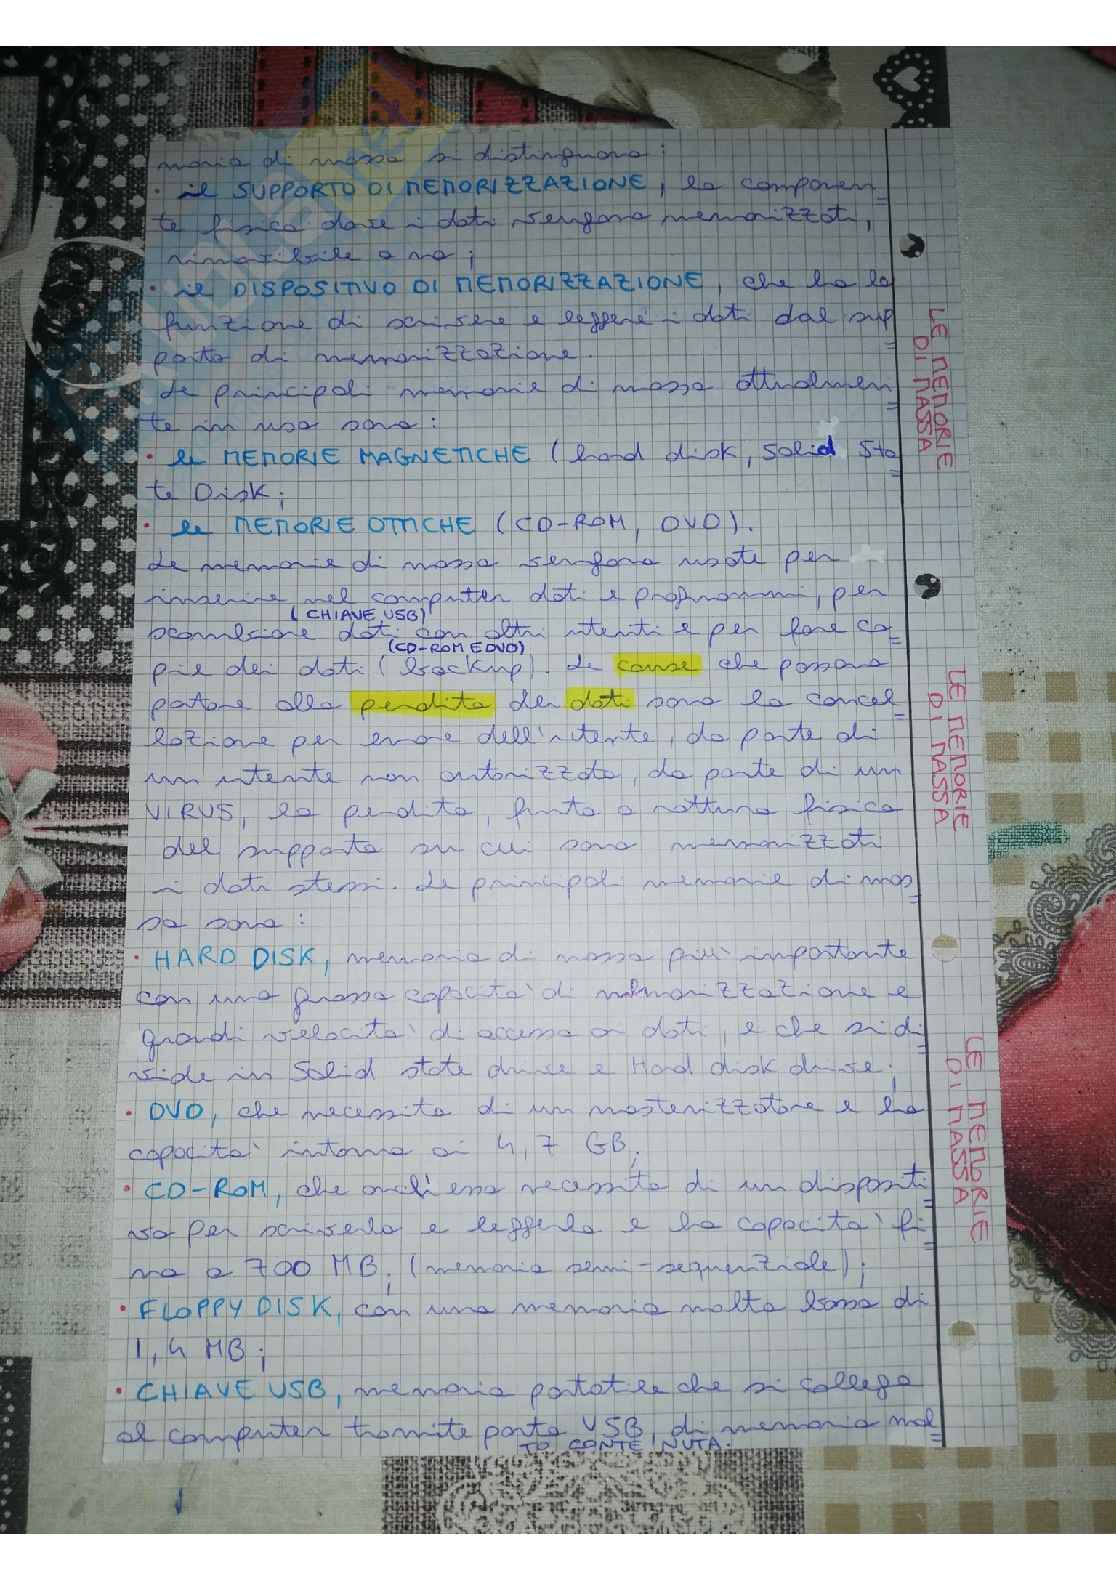 moria di massa si distinguono:
· il SUPPORTO DI MEMORIZZAZIONE, la componen
te fisica dove i dati vengono memorizzati,
rimovibile o no;
· il DISPOSITIVO DI MEMORIZZAZIONE, che ha la
funzione di scrivere e leggere i dati dal sup
porto di memorizzazione.
Le principali memorie di massa attualmen
te in uso sono:
· le MEMORIE MAGNETICHE (hard disk, Solid Sta
te Disk;
· le MEMORIE OTTICHE (CD-ROM, DVD).
Le memorie di massa vengono usate per
inserire nel computer dati e programmi, per
(CHIAVE USB)
scambiare dati con altri utenti e per fare co
(CD-ROM E DVD)
pie dei dati (backup). Le cause che possono
portare alla perdita dei dati sono la cancel
lazione per errore dell'utente, da parte di
un utente non autorizzato, da parte di un
VIRUS, la perdita, furto o rottura fisica
del supporto su cui sono memorizzati
i dati stessi. Le principali memorie di mas
sa sono:
· HARD DISK, memoria di massa più importante
con una grossa capacità di memorizzazione e
grandi velocità di accesso ai dati, e che si di
vide in Solid state drive e Hard disk drive;
· DVD, che necessita di un masterizzatore e ha
capacità intorno ai 4,7 GB;
· CD-ROM, che anch'esso necessita di un dispositi
vo per scriverlo e leggerlo e ha capacità fi
no a 700 MB; (memoria semi-sequenziale);
· FLOPPY DISK, con una memoria molto bassa di
1,4 MB;
· CHIAVE USB, memoria portatile che si collega
al computer tramite porta USB, di memoria mol
TO CONTENUTA.
LE MEMORIE
DI MASSA
LE MEMORIE
DI MASSA
LE MEMORIE
DI MASSA